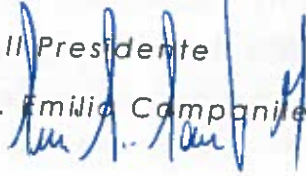 Il Presidente
. Emilio Campanile